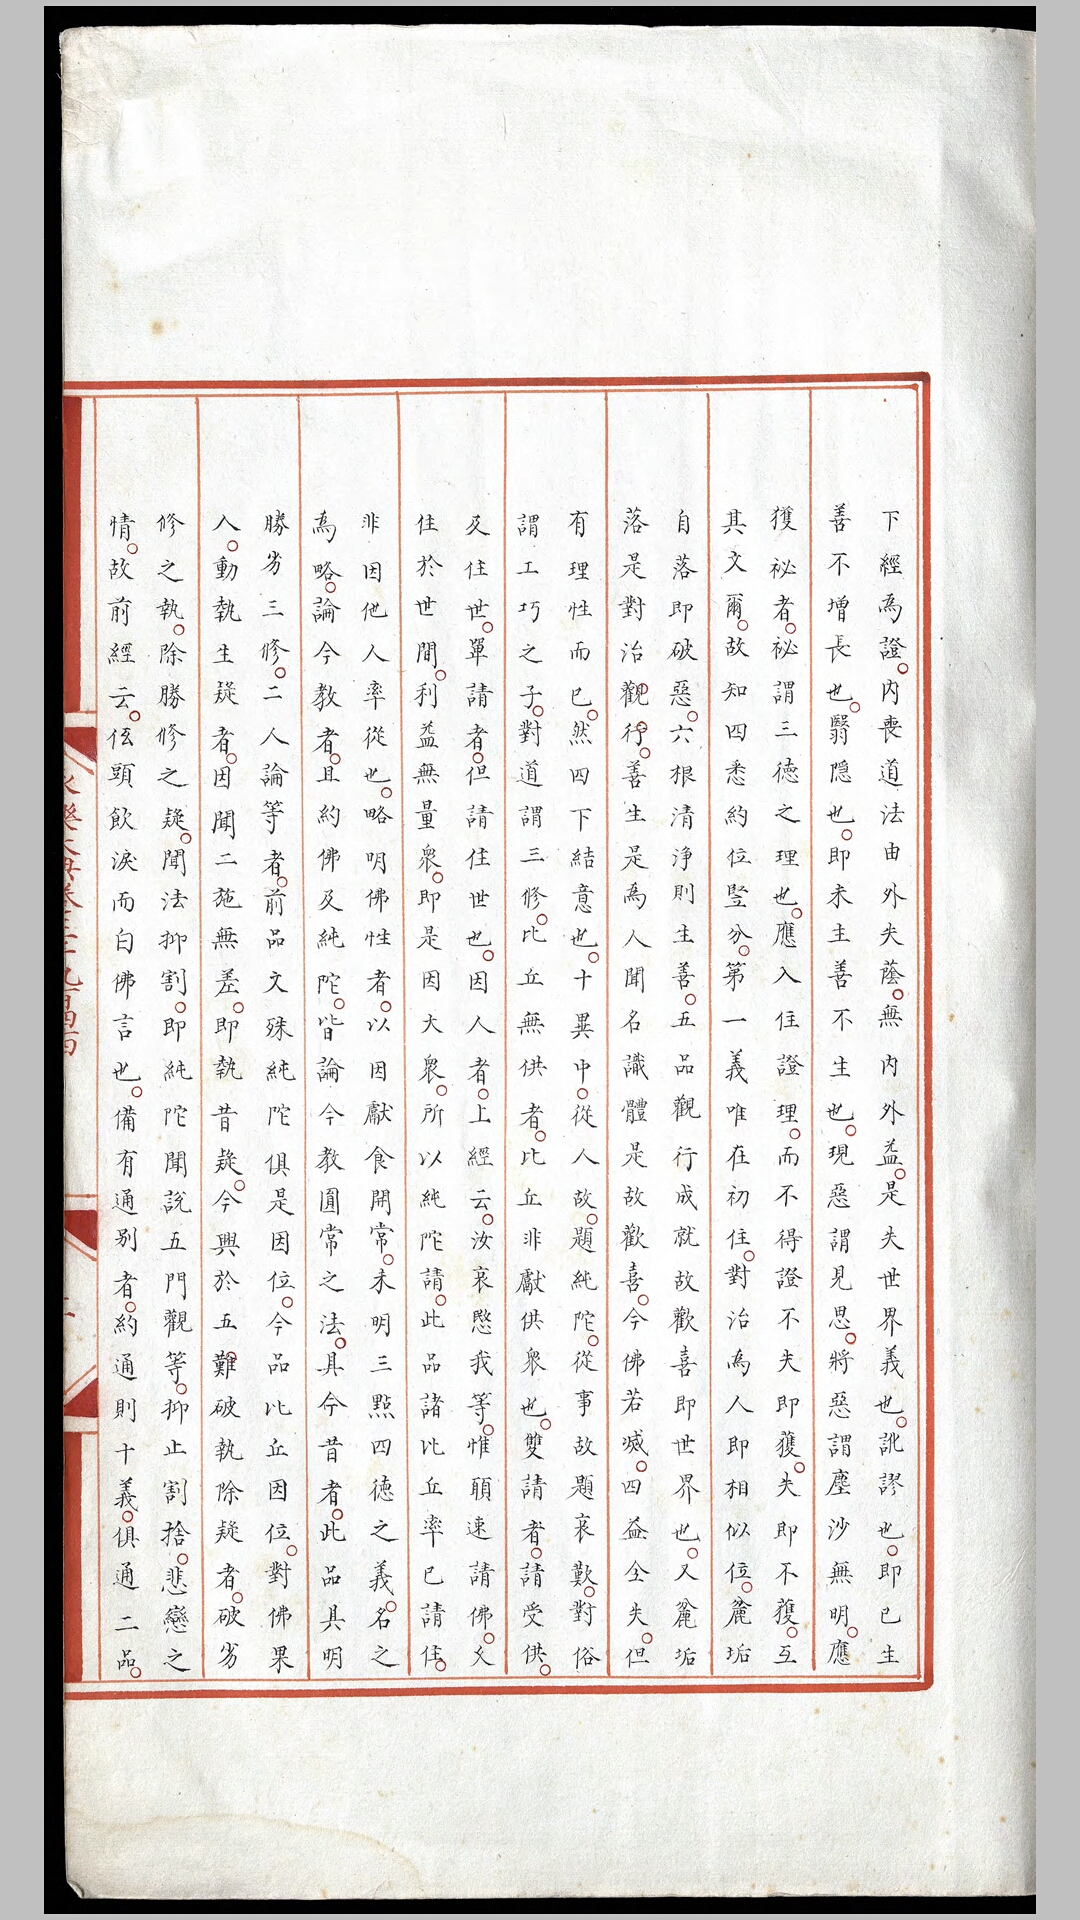 下經為證內喪道法由外失蔭無內外益是失世界義也訛謬也即已生
善不增長也翳隱也即未生善不生也現惡謂見思將惡謂塵沙無明應
獲祕者祕謂三德之理也應入住證理而不得證不失即獲失即不獲互
其文爾故知四悉約位豎分第一義唯在初住對治為人即相似位麁垢
自落即破惡六根清淨則生善五品觀行成就故歡喜即世界也又麁垢
落是對治觀行善生是為人聞名識體是故歡喜今佛若滅四益全失但
有理性而已然四下結意也十異中從人故題純陀從事故題哀歎對俗
謂工巧之子對道謂三修比丘無供者比丘非獻供眾也雙請者請受供
及住世單請者但請住世也因人者上經云汝哀愍我等惟願速請佛久
住於世間利益無量眾即是因大眾所以純陀請此品諸比丘率已請住
非因他人率從也略明佛性者以因獻食開常未明三點四德之義名之
為略論今教者且約佛及純陀皆論今教圓常之法具今昔者此品具明
勝劣三修二人論等者前品文殊純陀俱是因位今品比丘因位對佛果
人動執生疑者因聞二施無差即執昔疑今興於五難破執除疑者破劣
修之執除勝修之疑聞法抑割即純陀聞說五門觀等抑止割捨悲戀之
情故前經云伭頭飲淚而白佛言也備有通別者約通則十義俱通二品